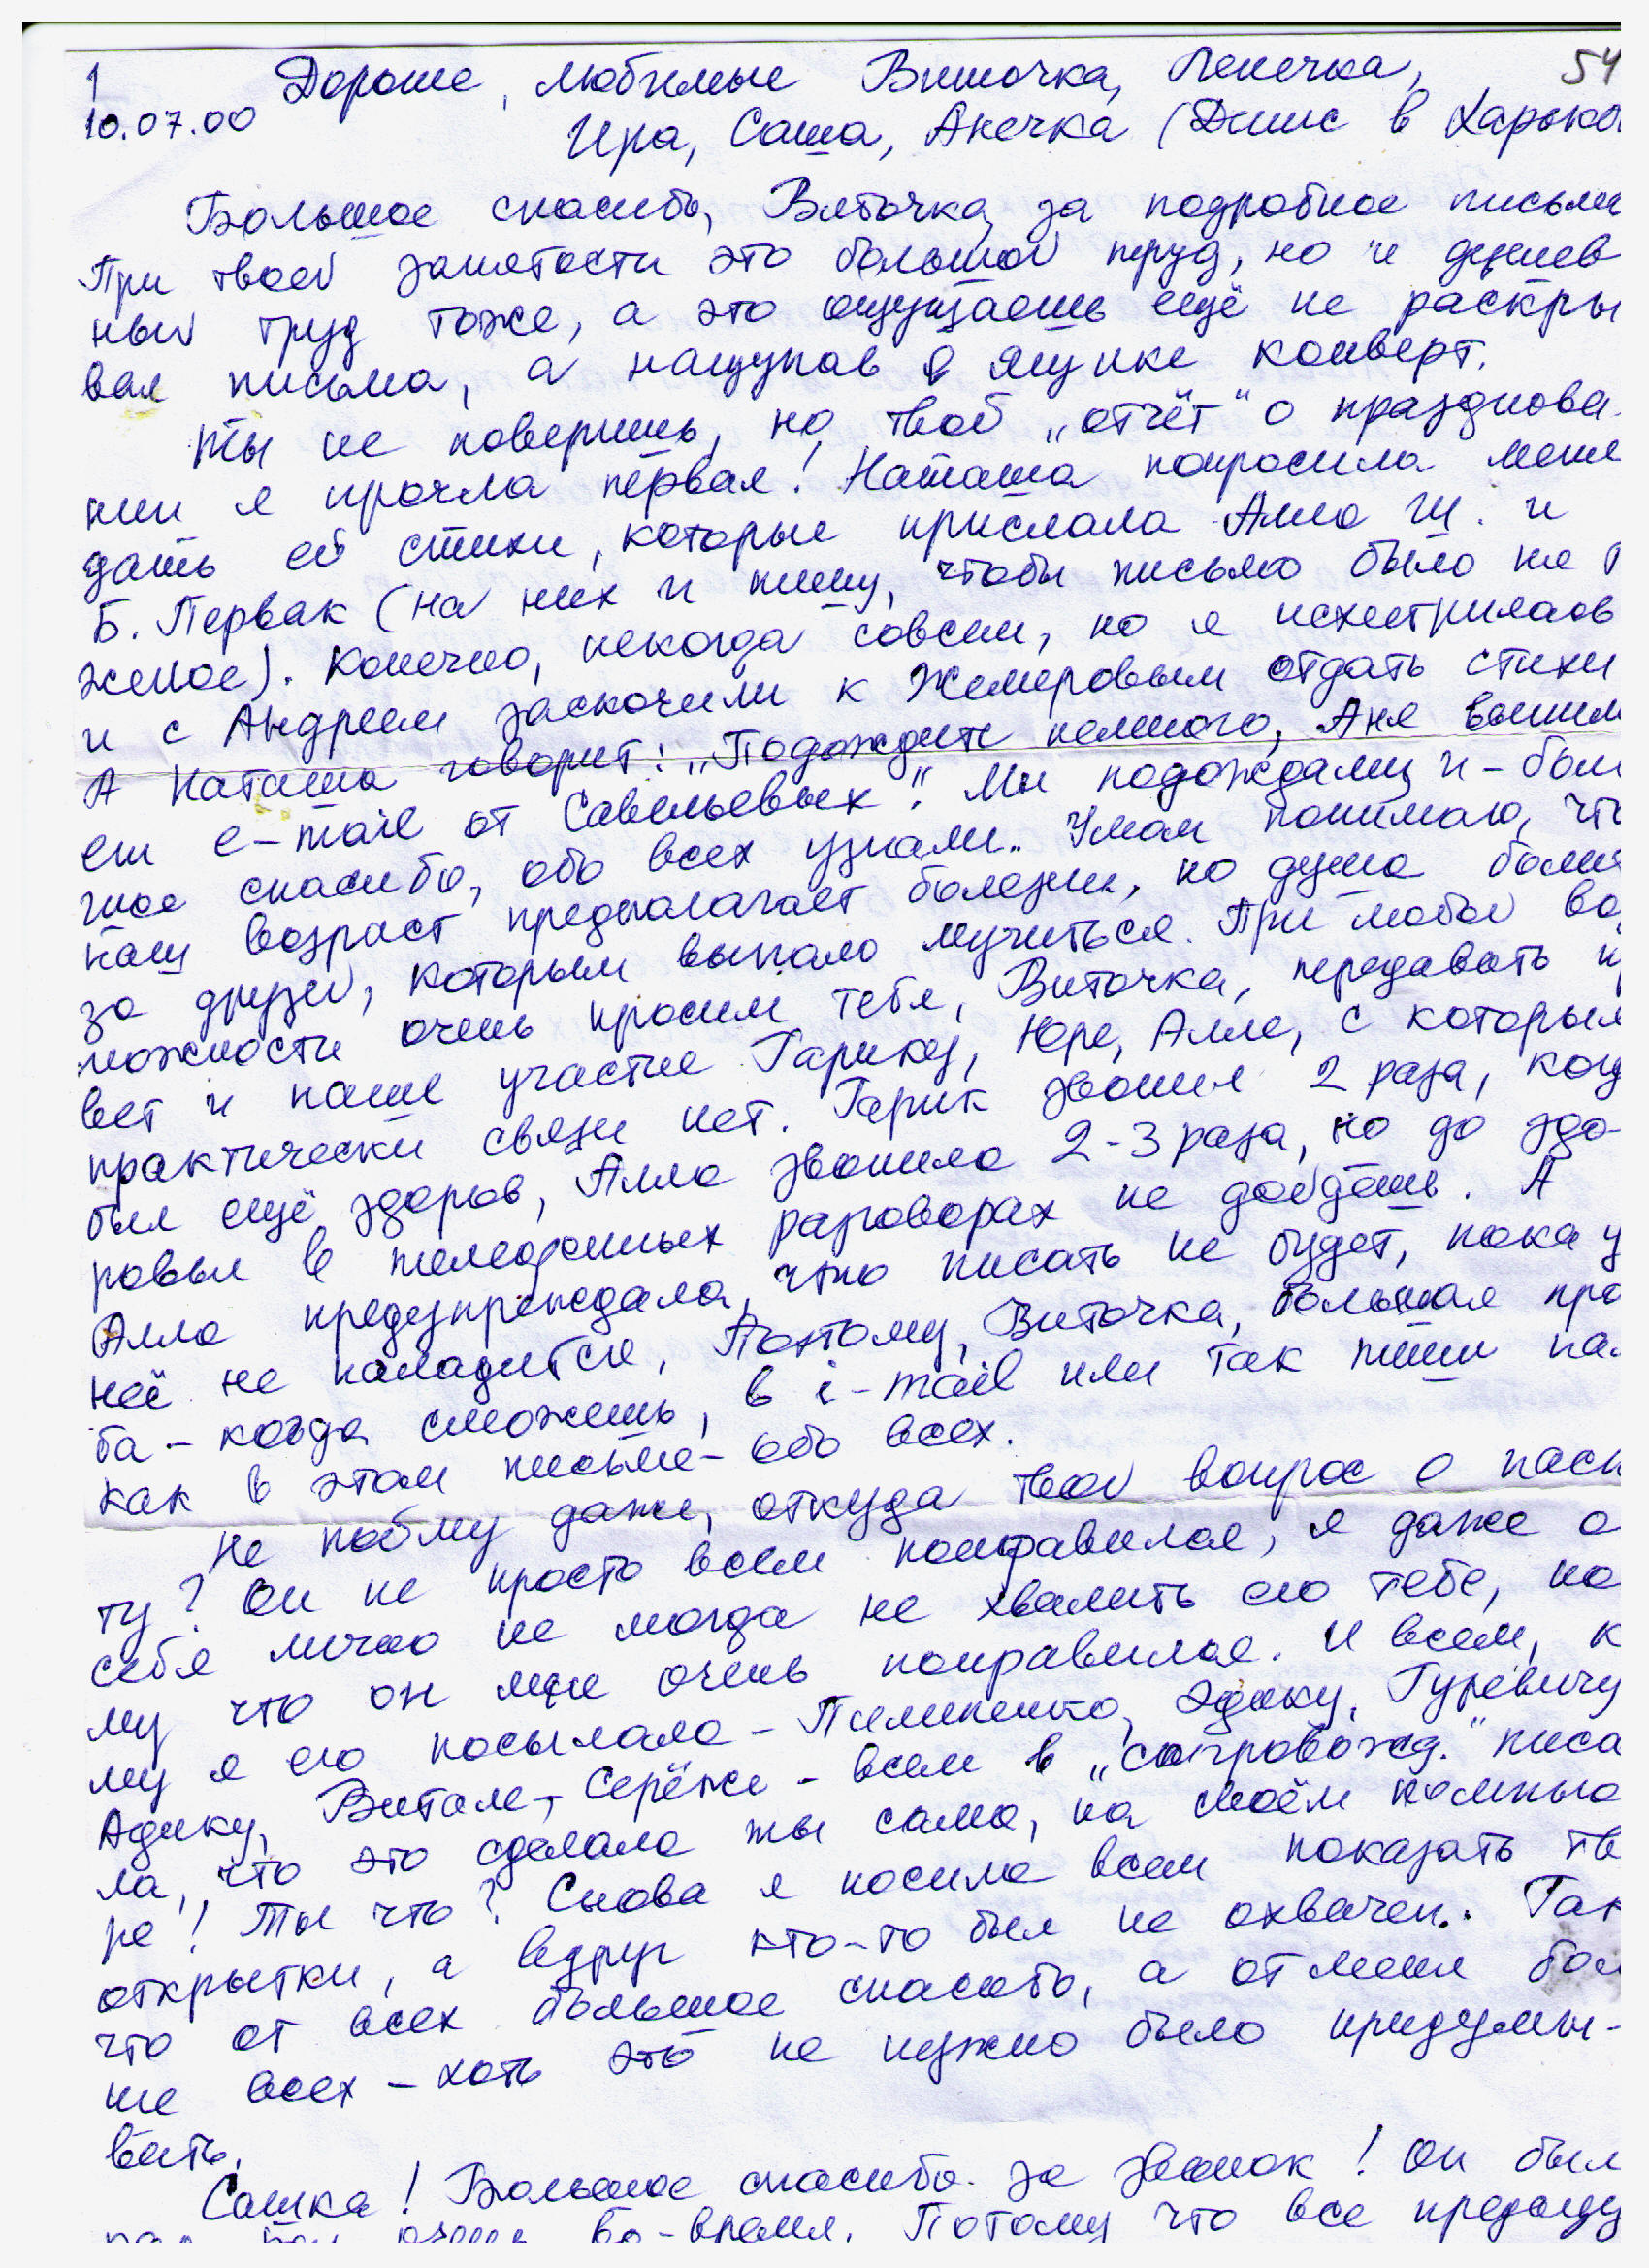 1 Дорогие, любимые Витточка, Ленечка, 54
10.07.00 Ира, Саша, Анечка (Денис в Харько
Большое спасибо, Виточка, за подробное письмо
При твоей занятости это большой труд, но и душев
ный труд тоже, а это ощущаешь ещё не раскры
вая письма, а нащупав в ящике конверт.
Ты не поверишь, но твой „отчёт“ о празднова
нии я прочла первая! Наташа попросила меня
дать ей стихи, которые прислала Алла Щ. и
Б. Первак (на них и пишу, чтобы письмо было не т
желое). Конечно, некогда совсем, но я исхитрилась
и с Андреем заскочили к Жемеровым отдать стихи
А Наташа говорит: „Подождите немного, Аня вышл
ет e-mail от Савельевых“. Мы подождали, и – боль
шое спасибо, обо всех узнали. Умом понимаю, что
наш возраст предполагает болезни, но душа болит
за друзей, которым выпало мучиться. При любой воз
можности очень просим тебя, Виточка, передавать пр
вет и наше участие Гарику, Юре, Алле, с которым
практически связи нет. Гарик звонил 2 раза, когд
был ещё здоров, Алла звонила 2-3 раза, но до здо-
ровья в телефонных разговорах не дойдёшь. А
Алла предупреждала, что писать не будет, пока у
неё не наладится, Поэтому, Виточка, большая про
ба – когда сможешь, в i-mail или так пиши на
как в этом письме – обо всех.
Не пойму даже, откуда твой вопрос о пасп
ту? Он не просто всем понравился, я даже о
себя лично не могла не хвалить его тебе, по
му что он мне очень понравился. И всем, к
му я его посылала – Пилипенко, Эдику, Гуревичу
Адику, Витале, Серёже – всем в „сопровожд.“ писа
ла, что это сделала ты сама, на своём компью
ре! Ты что? Снова я носила всем показать тв
открытки, а вдруг кто-то был не охвачен. Так
что от всех большое спасибо, а от меня бол
ше всех – хоть это не нужно было придумы-
вать.
Сашка! Большое спасибо за звонок! Он был
очень во-время. Потому что все предыду